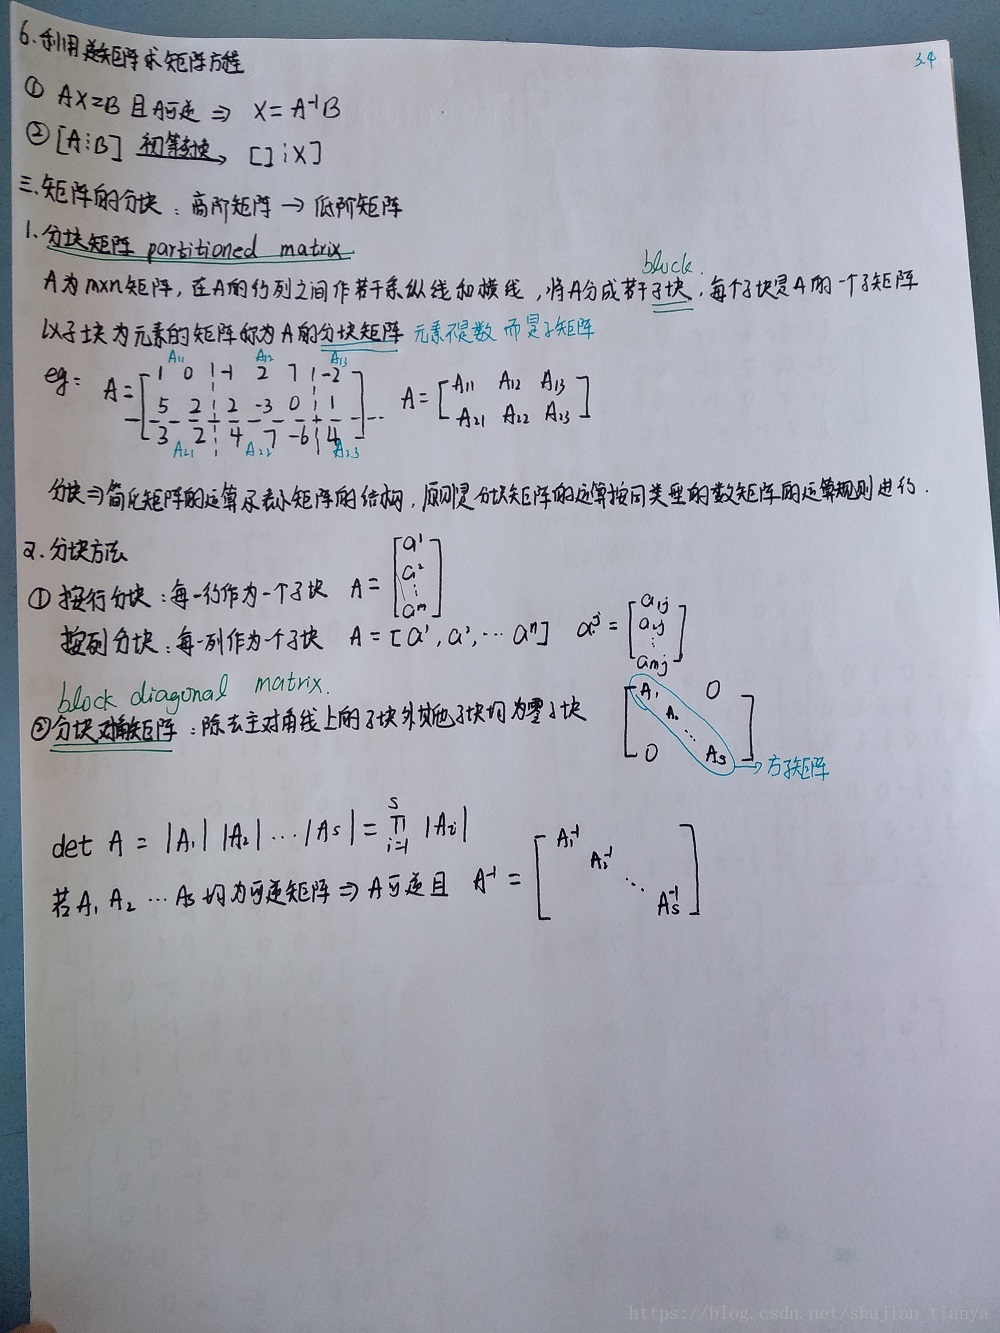 3.4
6.利用逆矩阵求矩阵方程
① AX=B 且A可逆 ⇒ X=A⁻¹B
② [A⋮B] 初等变换→ [I⋮X]
三.矩阵的分块:高阶矩阵→低阶矩阵
1.分块矩阵 partitioned matrix
block.
A为m×n矩阵,在A的行列之间作若干条纵线和横线,将A分成若干子块,每个子块是A的一个子矩阵
以子块为元素的矩阵称为A的分块矩阵 元素不是数 而是子矩阵
A₁₁ A₁₂ A₁₃
eg: A=[1 0 ¦ -1 2 7 ¦ -2 A=[A₁₁ A₁₂ A₁₃
5 2 ¦ 2 -3 0 ¦ 1
3 2 ¦ 4 7 -6 ¦ 4] A₂₁ A₂₂ A₂₃]
A₂₁ A₂₂ A₂₃
分块⇒简化矩阵的运算及表示矩阵的结构,原则是分块矩阵的运算按同类型的数矩阵的运算规则进行.
2.分块方法
① 按行分块:每一行作为一个子块 A=[a¹ a² ⋮ aᵐ]
按列分块:每一列作为一个子块 A=[a¹,a²,⋯aⁿ] aʲ=[a₁ⱼ a₂ⱼ ⋮ aₘⱼ]
block diagonal matrix.
②分块对角矩阵:除去主对角线上的子块外其他子块均为零子块 [A₁ 0 A₂ ⋱ 0 Aₛ]
→方子矩阵
det A = |A₁| |A₂| ⋯ |Aₛ| = ∏ˢᵢ₌₁ |Aᵢ|
若A₁ A₂ ⋯ Aₛ 均为可逆矩阵⇒A可逆且 A⁻¹ = [A₁⁻¹ A₂⁻¹ ⋱ Aₛ⁻¹]
https://blog.csdn.net/shujian_tianya